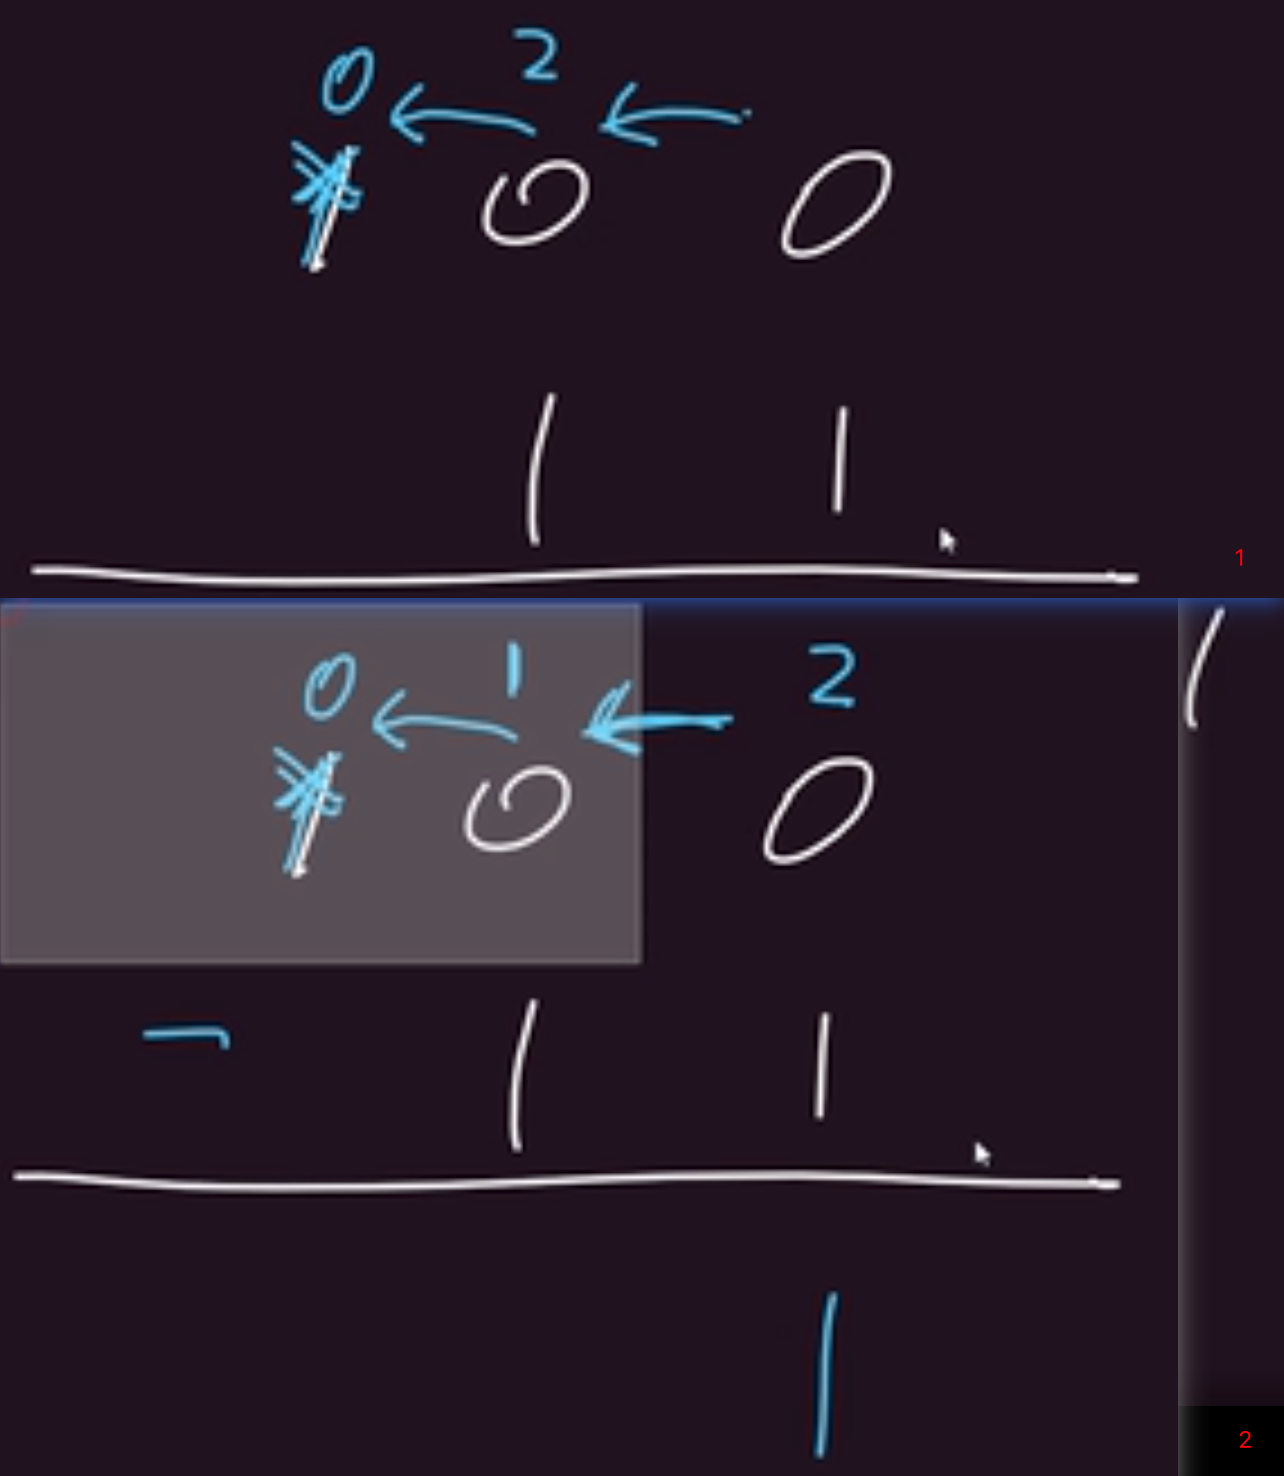 0 2
1 0 0
1 1
1
0 1 2
1 0 0
- 1 1
1
2